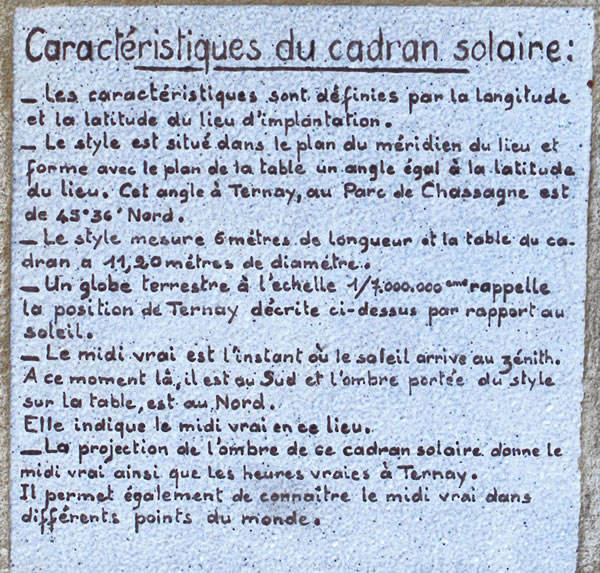 Caractéristiques du cadran solaire:
_ Les caractéristiques sont définies par la longitude
et la latitude du lieu d'implantation.
_ Le style est situé dans le plan du méridien du lieu et
forme avec le plan de la table un angle égal à la latitude
du lieu. Cet angle à Ternay, au Parc de Chassagne est
de 45°36' Nord.
_ Le style mesure 6 mètres de longueur et la table du ca-
dran a 11,20 mètres de diamétre.
_ Un globe terrestre à l'échelle 1/7.000.000 eme rappelle
la position de Ternay décrite ci-dessus par rapport au
soleil.
_ Le midi vrai est l'instant où le soleil arrive au zénith.
A ce moment là, il est au Sud et l'ombre portée du style
sur la table, est au Nord.
Elle indique le midi vrai en ce lieu.
_ La projection de l'ombre de ce cadran solaire donne le
midi vrai ainsi que les heures vraies à Ternay.
Il permet également de connaître le midi vrai dans
différents points du monde.